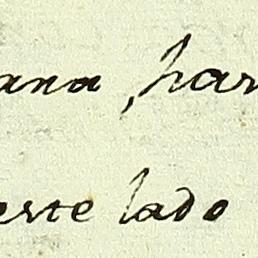 ana, par
este lado